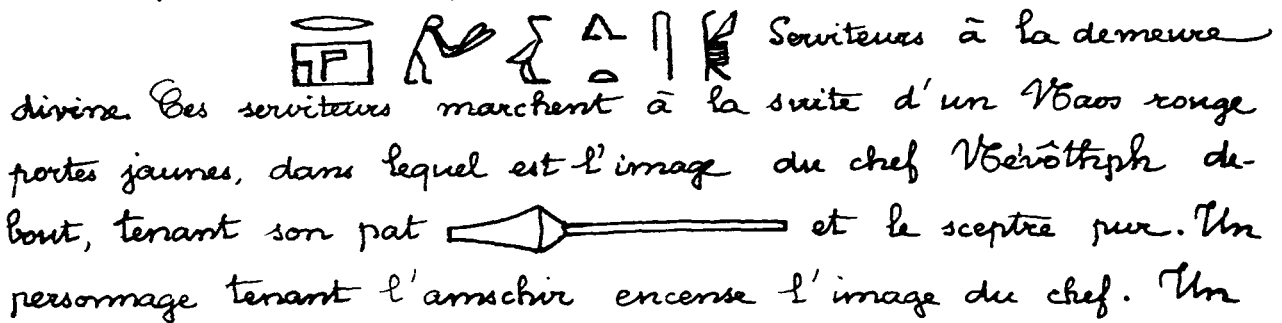 Serviteurs à la demeure
divine. Ces serviteurs marchent à la suite d'un Naos rouge
portes jaunes, dans lequel est l'image du chef Névôthph de-
bout, tenant son pat et le sceptre pur. Un
personnage tenant l'amschir encense l'image du chef. Un